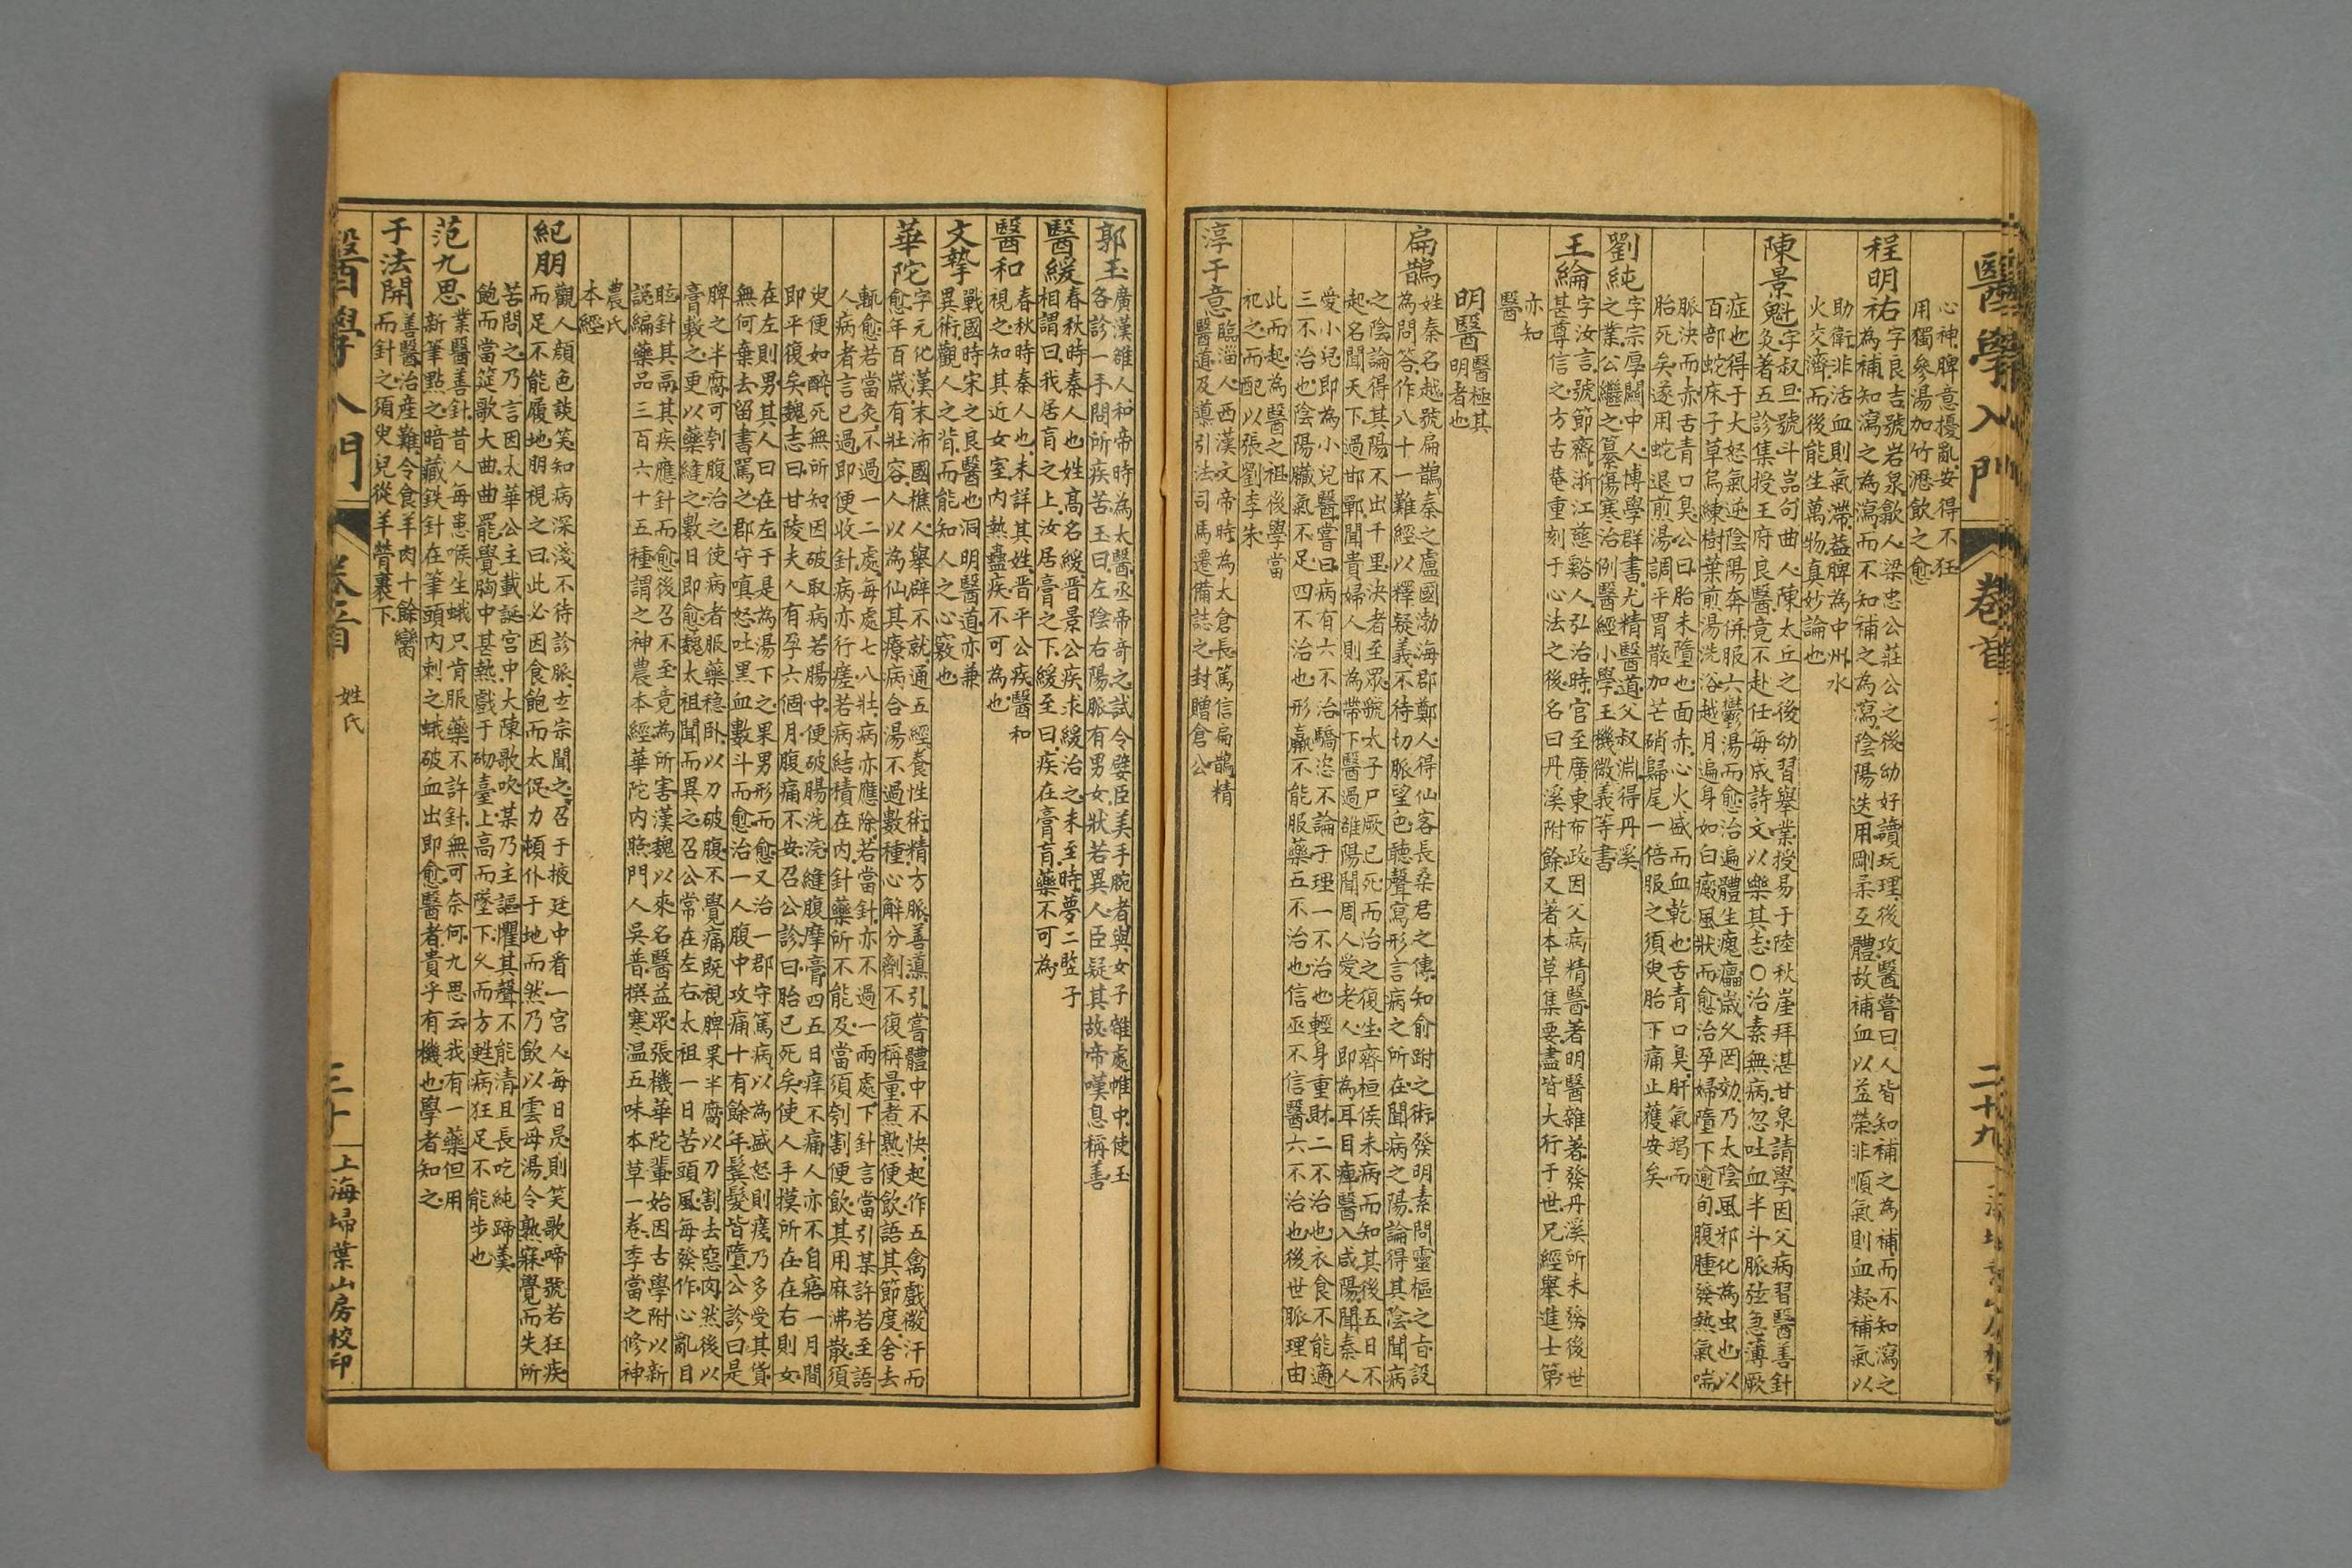 醫學入門 卷首 二十九
心神脾意擾亂安得不狂
用獨參湯加竹瀝飲之愈
程明祐
字良吉號岩泉歙人梁忠公莊公之後幼好讀玩理後攻醫嘗曰人皆知補之為補而不知瀉之
為補知瀉之為瀉而不知補之為瀉陰陽迭用剛柔互體故補血以益榮非順氣則血凝補氣以
助衛非活血則氣滯益脾為中州水
火交濟而後能生萬物真妙論也
陳景魁
字叔旦號斗嵓句曲人陳太丘之後幼習舉業授易于陸秋崖拜湛甘泉請學因父病習醫善針
灸著五診集授王府良醫竟不赴任每成詩文以樂其志○治素無病忽吐血半斗脈弦急薄厥
症也得于大怒氣逆陰陽奔併服六鬱湯而愈治遍體生瘣癗歲久罔効乃太陰風邪化為虫也以
百部蛇床子草烏練樹葉煎湯洗浴越月遍身如白癜風狀而愈治孕婦墮下逾旬腹腫發熱氣喘
脈決而赤舌青口臭公曰胎未墮也面赤心火盛而血乾也舌青口臭肝氣竭而
胎死矣遂用蛇退煎湯調平胃散加芒硝歸尾一倍服之須臾胎下痛止獲安矣
劉純
字宗厚關中人博學群書尤精醫道父叔淵得丹溪
之業公繼之纂傷寒治例醫經小學玉機微義等書
王綸
字汝言號節齋浙江慈谿人弘治時官至廣東布政因父病精醫著明醫雜著發丹溪所未發後世
甚尊信之方古菴重刻于心法之後名曰丹溪附餘又著本草集要盡皆大行于世兄經舉進士第
亦知
醫
明醫
醫極其
明者也
扁鵲
姓秦名越號扁鵲秦之盧國渤海郡鄭人得仙客長桑君之傳知俞跗之術發明素問靈樞之旨設
為問答作八十一難經以釋疑義不待切脈望色聽聲寫形言病之所在聞病之陽論得其陰聞病
之陰論得其陽不出千里決者至眾虢太子尸厥已死而治之復生齊桓侯未病而知其後五日不
起名聞天下過邯鄲聞貴婦人則為帶下醫過雒陽聞周人愛老人即為耳目痺醫入咸陽聞秦人
愛小兒即為小兒醫嘗曰病有六不治驕恣不論于理一不治也輕身重財二不治也衣食不能適
三不治也陰陽臟氣不足四不治也形羸不能服藥五不治也信巫不信醫六不治也後世脈理由
此而起為醫之祖後學當
祀之而配以張劉李朱
淳于意
臨淄人西漢文帝時為太倉長篤信扁鵲精
醫道及導引法司馬遷備誌之封贈倉公
郭玉
廣漢雒人和帝時為太醫丞帝奇之試令嬖臣美手腕者與女子雜處帷中使玉
各診一手問所疾苦玉曰左陰右陽脈有男女狀若異人臣疑其故帝嘆息稱善
醫緩
春秋時秦人也姓高名緩晉景公疾求緩治之未至時夢二豎子
相謂曰我居肓之上汝居膏之下緩至曰疾在膏肓藥不可為
醫和
春秋時秦人也未詳其姓晉平公疾醫和
視之知其近女室內熱蠱疾不可為也
文摯
戰國時宋之良醫也洞明醫道亦兼
異術觀人之背而能知人之心竅也
華陀
字元化漢末沛國樵人舉辟不就通五經養性術精方脈善導引嘗體中不快起作五禽戲微汗而
愈年百歲有壯容人以為仙其療病合湯不過數種心解分劑不復稱量煮熟便飲語其節度舍去
輒愈若當灸不過一二處每處七八壯病亦應除若當針亦不過一兩處下針言當引某許若至語
人病者言已過即便收針病亦行瘥若病結積在內針藥所不能及當須刳割便飲其用麻沸散須
臾便如醉死無所知因破取病若腸中便破腸洗浣縫腹摩膏四五日痒不痛人亦不自寤一月間
即平復矣魏志曰甘陵夫人有孕六個月腹痛不安召公診曰胎已死矣使人手摸所在在右則女
在左則男其人曰在左于是為湯下之果男形而愈又治一郡守篤病以為盛怒則瘥乃多受其貨
無何棄去留書罵之郡守嗔怒吐黑血數斗而愈治一人腹中攻痛十有餘年鬓髮皆墮公診曰是
脾之半腐可刳腹治之使病者服藥穩臥以刀破腹不覺痛既視脾果半腐以刀割去惡肉然後以
膏敷之更以藥縫之數日即愈魏太祖聞而異之召公常在左右太祖一日苦頭風每發作心亂目
眩針其鬲其疾應針而愈後召不至竟為所害漢魏以來名醫益眾張機華陀輩始因古學附以新
說編藥品三百六十五種謂之神農本經華陀內照門人吳普撰寒溫五味本草一卷李當之修神
農氏
本經
紀朋
觀人顏色談笑知病深淺不待診脈玄宗聞之召于掖廷中看一宮人每日昃則笑歌啼號若狂疾
而足不能履地朋視之曰此必因食飽而太促力頓仆于地而然乃飲以雲母湯令熟寐覺而失所
苦問之乃言因太華公主載誕宮中大陳歌吹某乃主謳懼其聲不能清且長吃㹠蹄羹
飽而當筵歌大曲曲罷覺胸中甚熱戲于砌臺上高而墜下久而方甦病狂足不能步也
范九思
業醫善針昔人每患喉生蛾只肯服藥不許針無可奈何九思云我有一藥但用
新筆點之暗藏鉄針在筆頭內刺之蛾破血出即愈醫者貴乎有機也學者知之
于法開
善醫治產難令食羊肉十餘臠
而針之須臾兒從羊膋裹下
醫學入門 卷首 姓氏 三十 上海埽葉山房校印